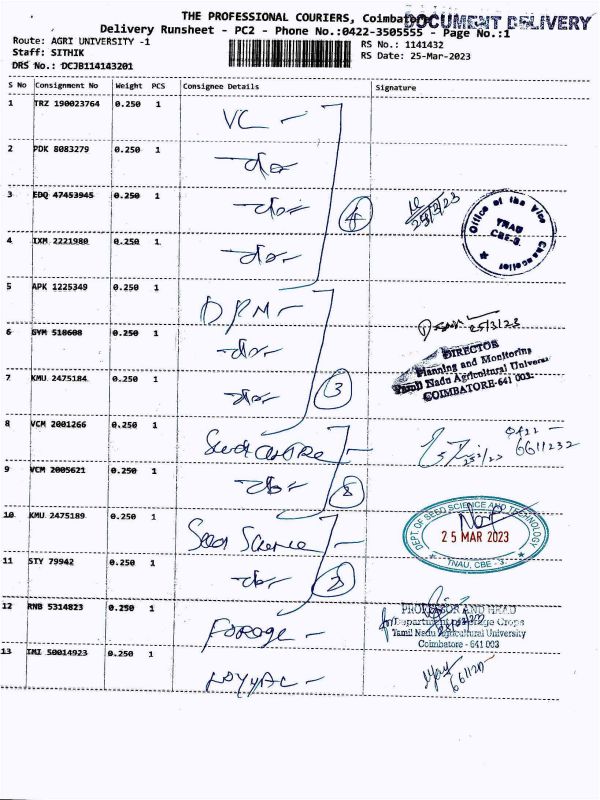 THE PROFESSIONAL COURIERS, Coimbatore
DOCUMENT DELIVERY
Delivery Runsheet - PC2 - Phone No.:0422-3505555 - Page No.:1
Route: AGRI UNIVERSITY -1
RS No.: 1141432
Staff: SITHIK
RS Date: 25-Mar-2023
DRS No.: DCJB114143201
S No Consignment No Weight PCS Consignee Details Signature
1 TRZ 190023764 0.250 1 VC -
2 PDK 8083279 0.250 1 -do-
3 EDQ 47453945 0.250 1 -do- 4 25/3/23
Office of the Vice Chancellor
TNAU
CBE-3.
4 IXM 2221980 0.250 1 -do-
5 APK 1225349 0.250 1 DPM - 25/3/23
6 GYM 518608 0.250 1 -do-
DIRECTOR
Planning and Monitoring
Tamil Nadu Agricultural Univers
COIMBATORE-641 003.
7 KMU 2475184 0.250 1 -do- 3
8 VCM 2001266 0.250 1 Seed Centre - 0422 -
6611232
9 VCM 2005621 0.250 1 -do- 2
10 KMU 2475189 0.250 1 Seed Science -
DEPT. OF SEED SCIENCE AND TECHNOLOGY
25 MAR 2023
TNAU, CBE - 3.
11 STY 79942 0.250 1 -do- 2
12 RNB 5314823 0.250 1 Forage -
PROFESSOR AND HEAD
for Department of Forage Crops
Tamil Nadu Agricultural University
Coimbatore - 641 003
13 IMI 50014923 0.250 1